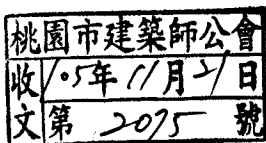 桃園市建築師公會
收文 105年11月21日
第2075號